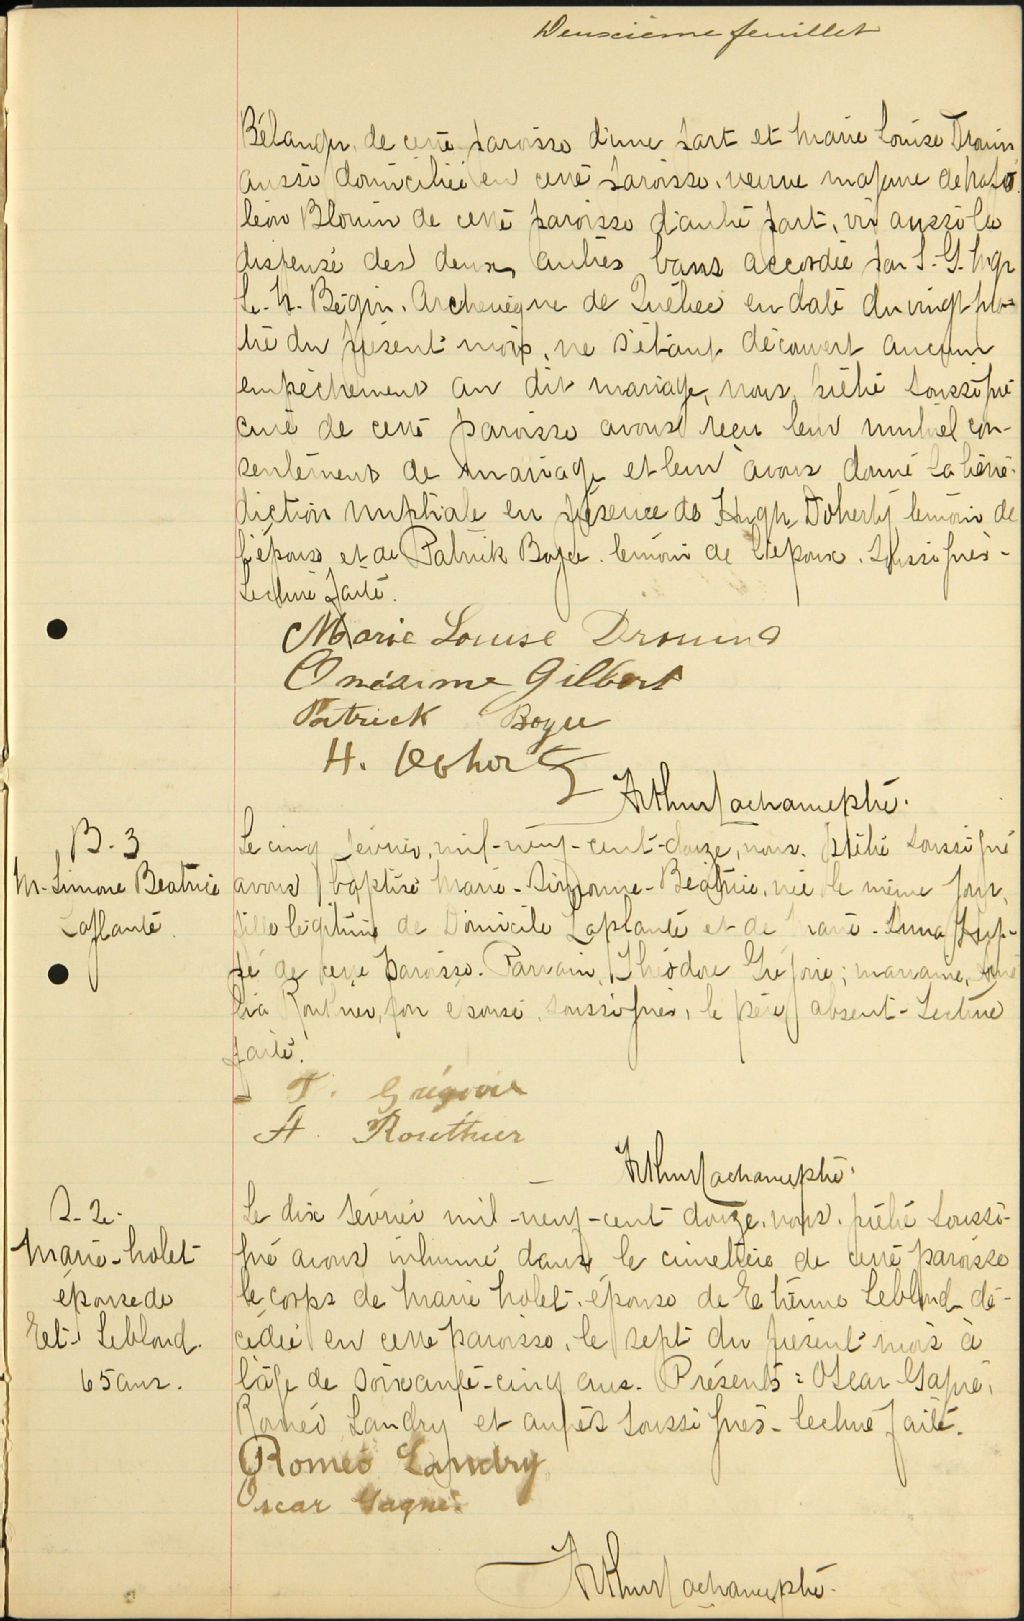 Deuxième feuillet
Bélanger, de cette paroisse d'une part et Marie Louise Drouin
aussi domiciliée en cette paroisse, veuve majeure de Napo
léon Blouin de cette paroisse d'autre part, vu aussi la
dispense des deux autres bans accordée par S. G. Mgr
L. N. Bégin, Archevêque de Québec en date du vingt
du présent mois, ne s'étant découvert aucun
empêchement au dit mariage, nous prêtre soussigné
curé de cette paroisse avons reçu leur mutuel con-
sentement de mariage et leur avons donné la béné-
diction nuptiale en présence de Hugh Doherty témoin de
l'époux et de Patrick Boyce témoin de l'épouse, soussignés-
Lecture faite.
Marie Louise Drouin
Onésime Gilbert
Patrick Boyce
H. Doherty
Arthur Lachance ptre.
B. 3
M. Simone Beatrice
Laplante
Le cinq février, mil-neuf-cent-douze, nous, prêtre soussigné
avons baptisé Marie-Simonne-Béatrice, née le même jour,
fille légitime de Domicile Laplante et de Marie-Anna
de cette paroisse. Parrain, Théodore Grégoire; marraine,
Routhier, son épouse, soussignés, le père absent-Lecture
faite.
T. Grégoire
A. Routhier
Arthur Lachance ptre.
S-2e-
Marie-Nolet
épouse de
Et. Leblond.
65 ans.
Le dix février mil-neuf-cent douze, nous, prêtre soussi-
gné avons inhumé dans le cimetière de cette paroisse
le corps de Marie Nolet, épouse de Etienne Leblond dé-
cédée en cette paroisse, le sept du présent mois à
l'âge de soixante-cinq ans. Présents: Oscar Gagné,
Roméo Landry et autres soussignés-Lecture faite.
Romeo Landry
Oscar Gagné
Arthur Lachance ptre.